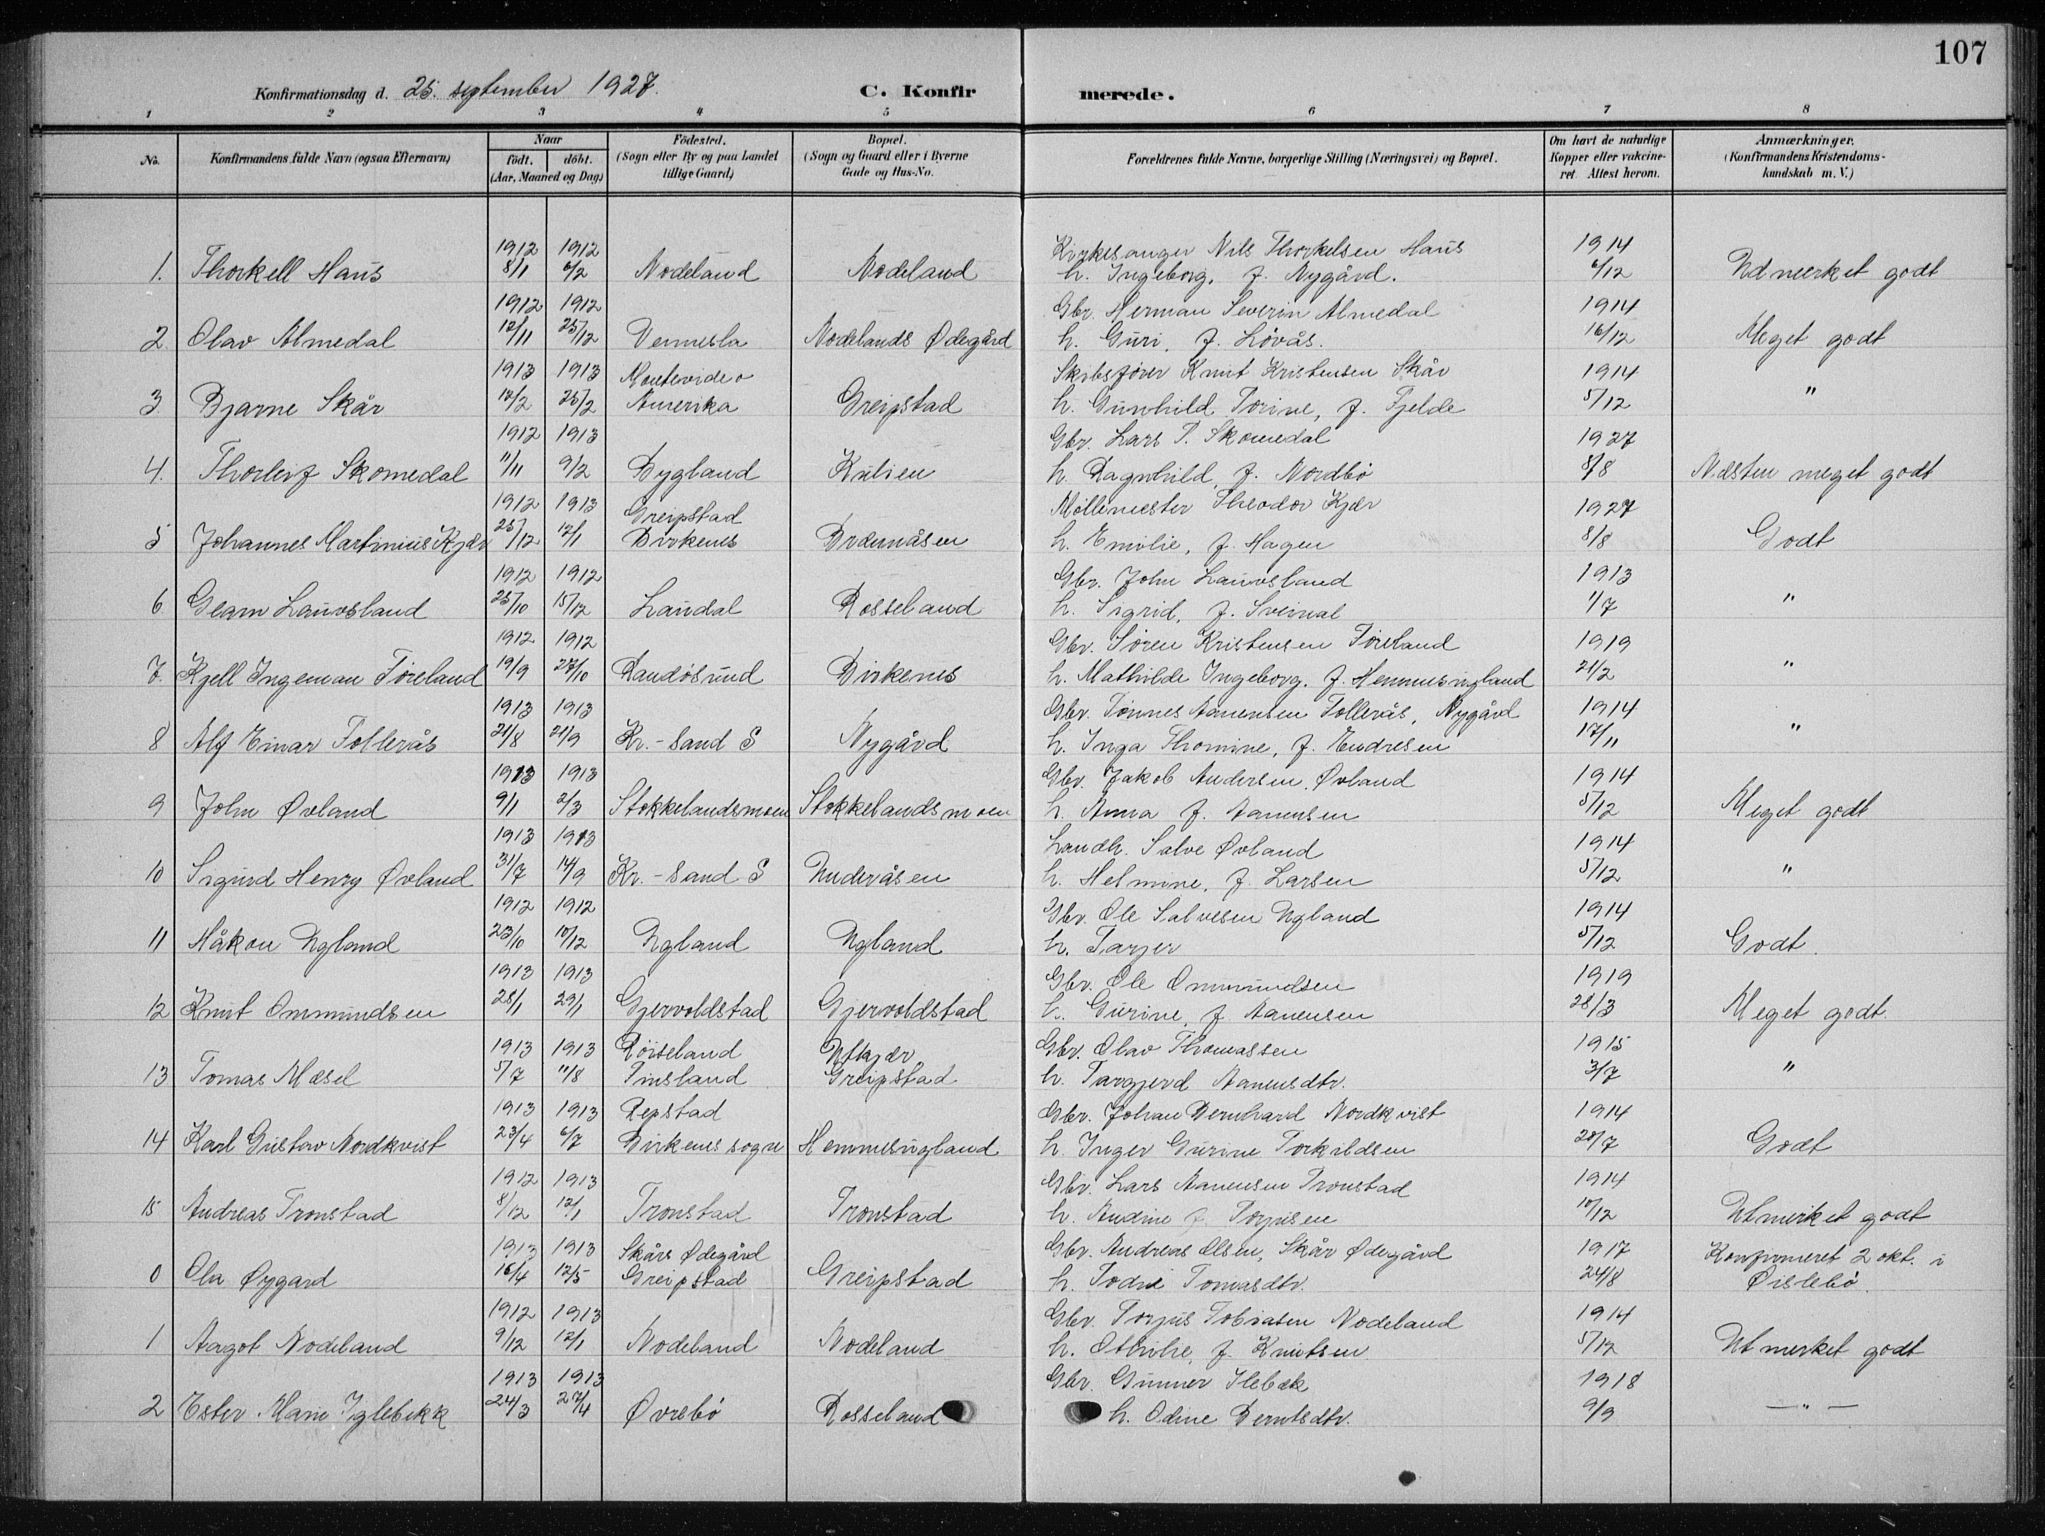 107
Konfirmationsdag d. 25. september 1927.
C. Konfirmerede.
1 2 3 4 5 6 7 8
No.
Konfirmandens fulde Navn (ogsaa Efternavn)
Naar
født. døbt.
(Aar, Maaned og Dag)
Fødested.
(Sogn eller By og paa Landet
tillige Gaard)
Bopæl.
(Sogn og Gaard eller i Byerne
Gade og Hus-No.
Forældrenes fulde Navne, borgerlige Stilling (Næringsvei) og Bopæl.
Om havt de naturlige
Kopper eller vakcine-
ret. Attest herom.
Anmærkninger.
(Konfirmandens Kristendoms-
kundskab m. V.)
1912 1912 Kirkesanger Nils Thorkelsen Haus 1914
1. Thorkell Haus 8/1 6/2 Nodeland Nodeland h. Ingeborg, f. Nygård. 6/12 Udmerket godt
1912 1912 Gbr. Herman Severin Almedal 1914
2 Olav Almedal 12/11 25/12 Vennesla Nodelands Ødegård h. Guri, f. Løvås. 16/12 Meget godt
1913 1913 Montevideo Skibsfører Knut Kristensen Skår 1914
3 Bjarne Skår 12/2 25/2 Amerika Greipstad h. Gunhild Torine, f. Fjelde 5/12 "
1912 1913 Gbr. Lars T. Skomedal 1927
4. Thorleif Skomedal 11/11 9/2 Bygland Kulien h. Ragnhild, f. Nordbö 8/8 Næsten meget godt
1912 1913 Greipstad Möllemester Theodor Kjær 1927
5 Johannes Martinius Kjær 25/12 12/1 Birkenes Brännåsen h. Emilie, f. Hagen 8/8 Godt
1912 1912 Gbr. John Lauvsland 1913
6 Gleam Lauvsland 25/10 15/12 Laudal Rosseland h. Sigrid, f. Sveinal 1/7 "
1912 1912 Gbr. Søren Kristensen Føreland 1919
7. Kjell Ingeman Føreland 19/9 27/10 Randøsund Birkenes h. Mathilde Ingeborg, f. Hemmesugland 21/2 "
1913 1913 Gbr. Tønnes Aanensen Follerås, Nygård 1914
8 Alf Einar Follerås 21/8 21/9 Kr.-sand S Nygård h. Inga Thomine, f. Endresen 17/11 "
1913 1913 Gbr. Jakob Andersen Øvland 1914
9 John Øvland 9/1 2/3 Stokkelandsmoen Stokkelandsmoen h. Anna f. Aanensen 5/12 Meget godt
1913 1913 Landh. Salve Øvland 1914
10 Sigurd Henry Øvland 31/7 14/9 Kr.-sand S Underåsen h. Helmine, f. Larsen 5/12 "
1912 1912 Gbr. Ole Salvesen Ugland 1914
11 Håkon Ugland 23/10 10/12 Ugland Ugland h. Tarjer 5/12 Godt.
1913 1913 Gbr. Ole Ommundsen 1919
12 Knut Ommundsen 28/1 29/1 Gjervoldstad Gjervoldstad h. Gurine, f. Aanensen 28/3 Meget godt.
1913 1913 Røiseland Uftkjær Gbr. Olav Thomassen 1915
13 Tomas Mæsel 5/7 11/8 Finsland Greipstad h. Targjerd Aanensdtr. 3/7 "
1913 1913 Repstad Gbr. Johan Bernhard Nordkvist 1914
14 Karl Gustav Nordkvist 23/4 6/7 Birkenes sogn Hemmesugland h. Inger Gurine Torkildsen 20/7 Godt
1912 1913 Gbr. Lars Aanensen Tronstad 1914
15 Andreas Tronstad 8/12 12/1 Tronstad Tronstad h. Andine f. Torjusen 10/12 Utmerket godt
1913 1913 Skårs Ødegård Gbr. Andreas Olsen, Skår Ødegård 1917 Konfirmeret 2 okt. i
0 Ola Øygard 16/4 12/5 Greipstad Greipstad h. Todne Tomasdtr. 24/8 Øislebö.
1912 1913 Gbr. Torjus Tobiasen Nodeland 1914
1 Aagot Nodeland 9/12 12/1 Nodeland Nodeland h. Othilie, f Knutsen 5/12 Utmerket godt
1913 1913 Gbr. Gunner Ilebæk 1918
2 Ester Marie Iglebekk 24/3 27/4 Øvrebö Rosseland h. Odine Berntsdtr. 9/9 — " —